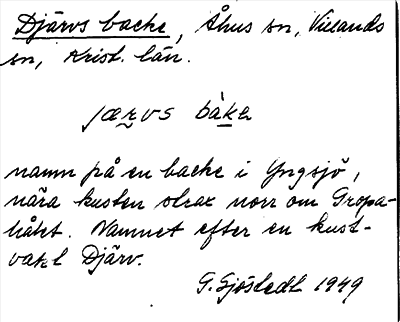 Djärvs backe, Åhus sn, Villands
sn, Krist. län.
jærvs bàke
namn på en backe i Yngsjö,
nära kusten strax norr om Gropa-
hålet. Namnet efter en kust-
vakt Djärv.
G. Sjöstedt 1949